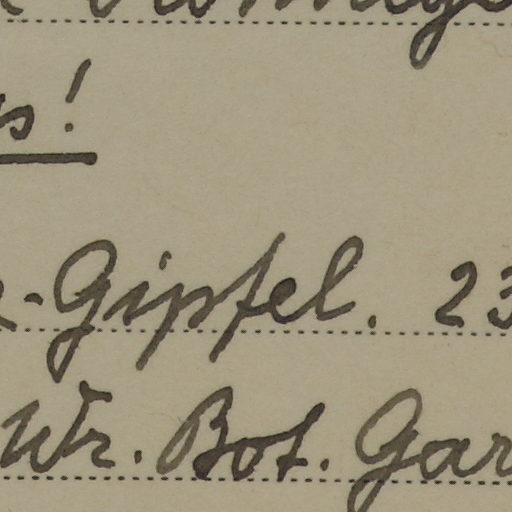 s!
-Gipfel. 23
Wr. Bot. Gar